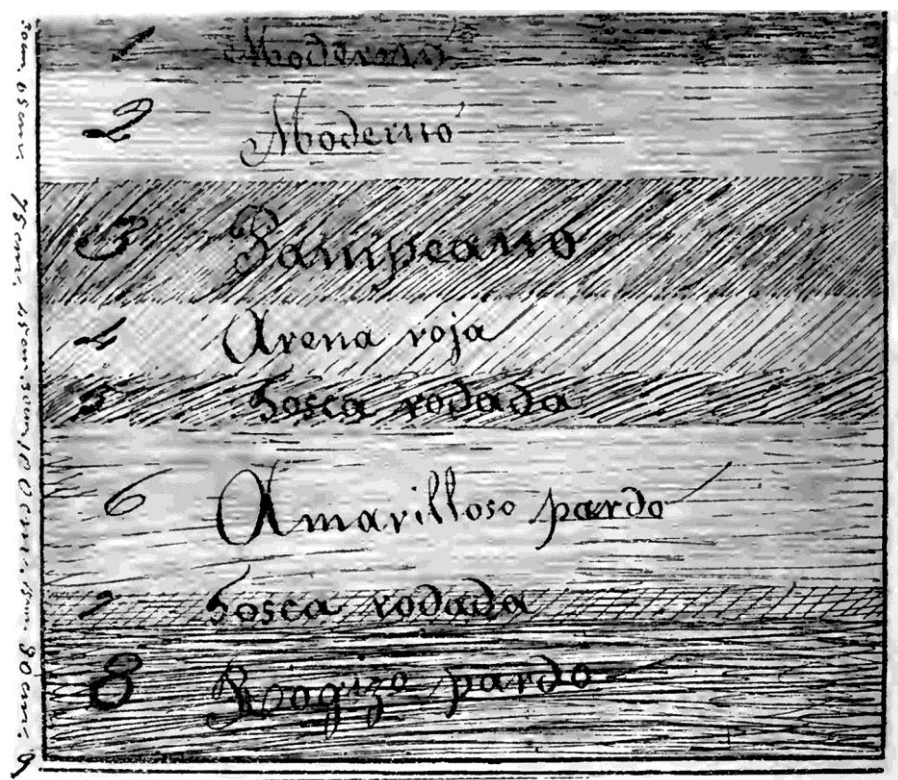 1 Moderno
2 Moderno
3 Pampeano
4 Arena roja
5 Tosca rodada
6 Amarilloso pardo
7 Tosca rodada
8 Roogizo pardo
30 cm 65 cm 75 cm 45 cm 30 cm 100 cm 15 cm 90 cm